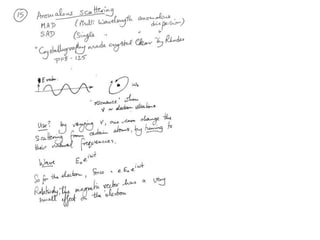 (15) Anomalous scattering
MAD (Multi Wavelength anomalous dispersion)
SAD (Single " " " )
"Crystallography made crystal clear" By Rhodes
pp118-125
E vector
ω₀
"resonance" when
ν = electron vibrations
Use? by varying ν, one can change the
scattering from certain atoms, by tuning to
their natural frequencies.
Wave E₀ e^iωt
So for the electron, force = e E₀ e^iωt
Relatively, the magnetic vector has a very
small effect on the electron